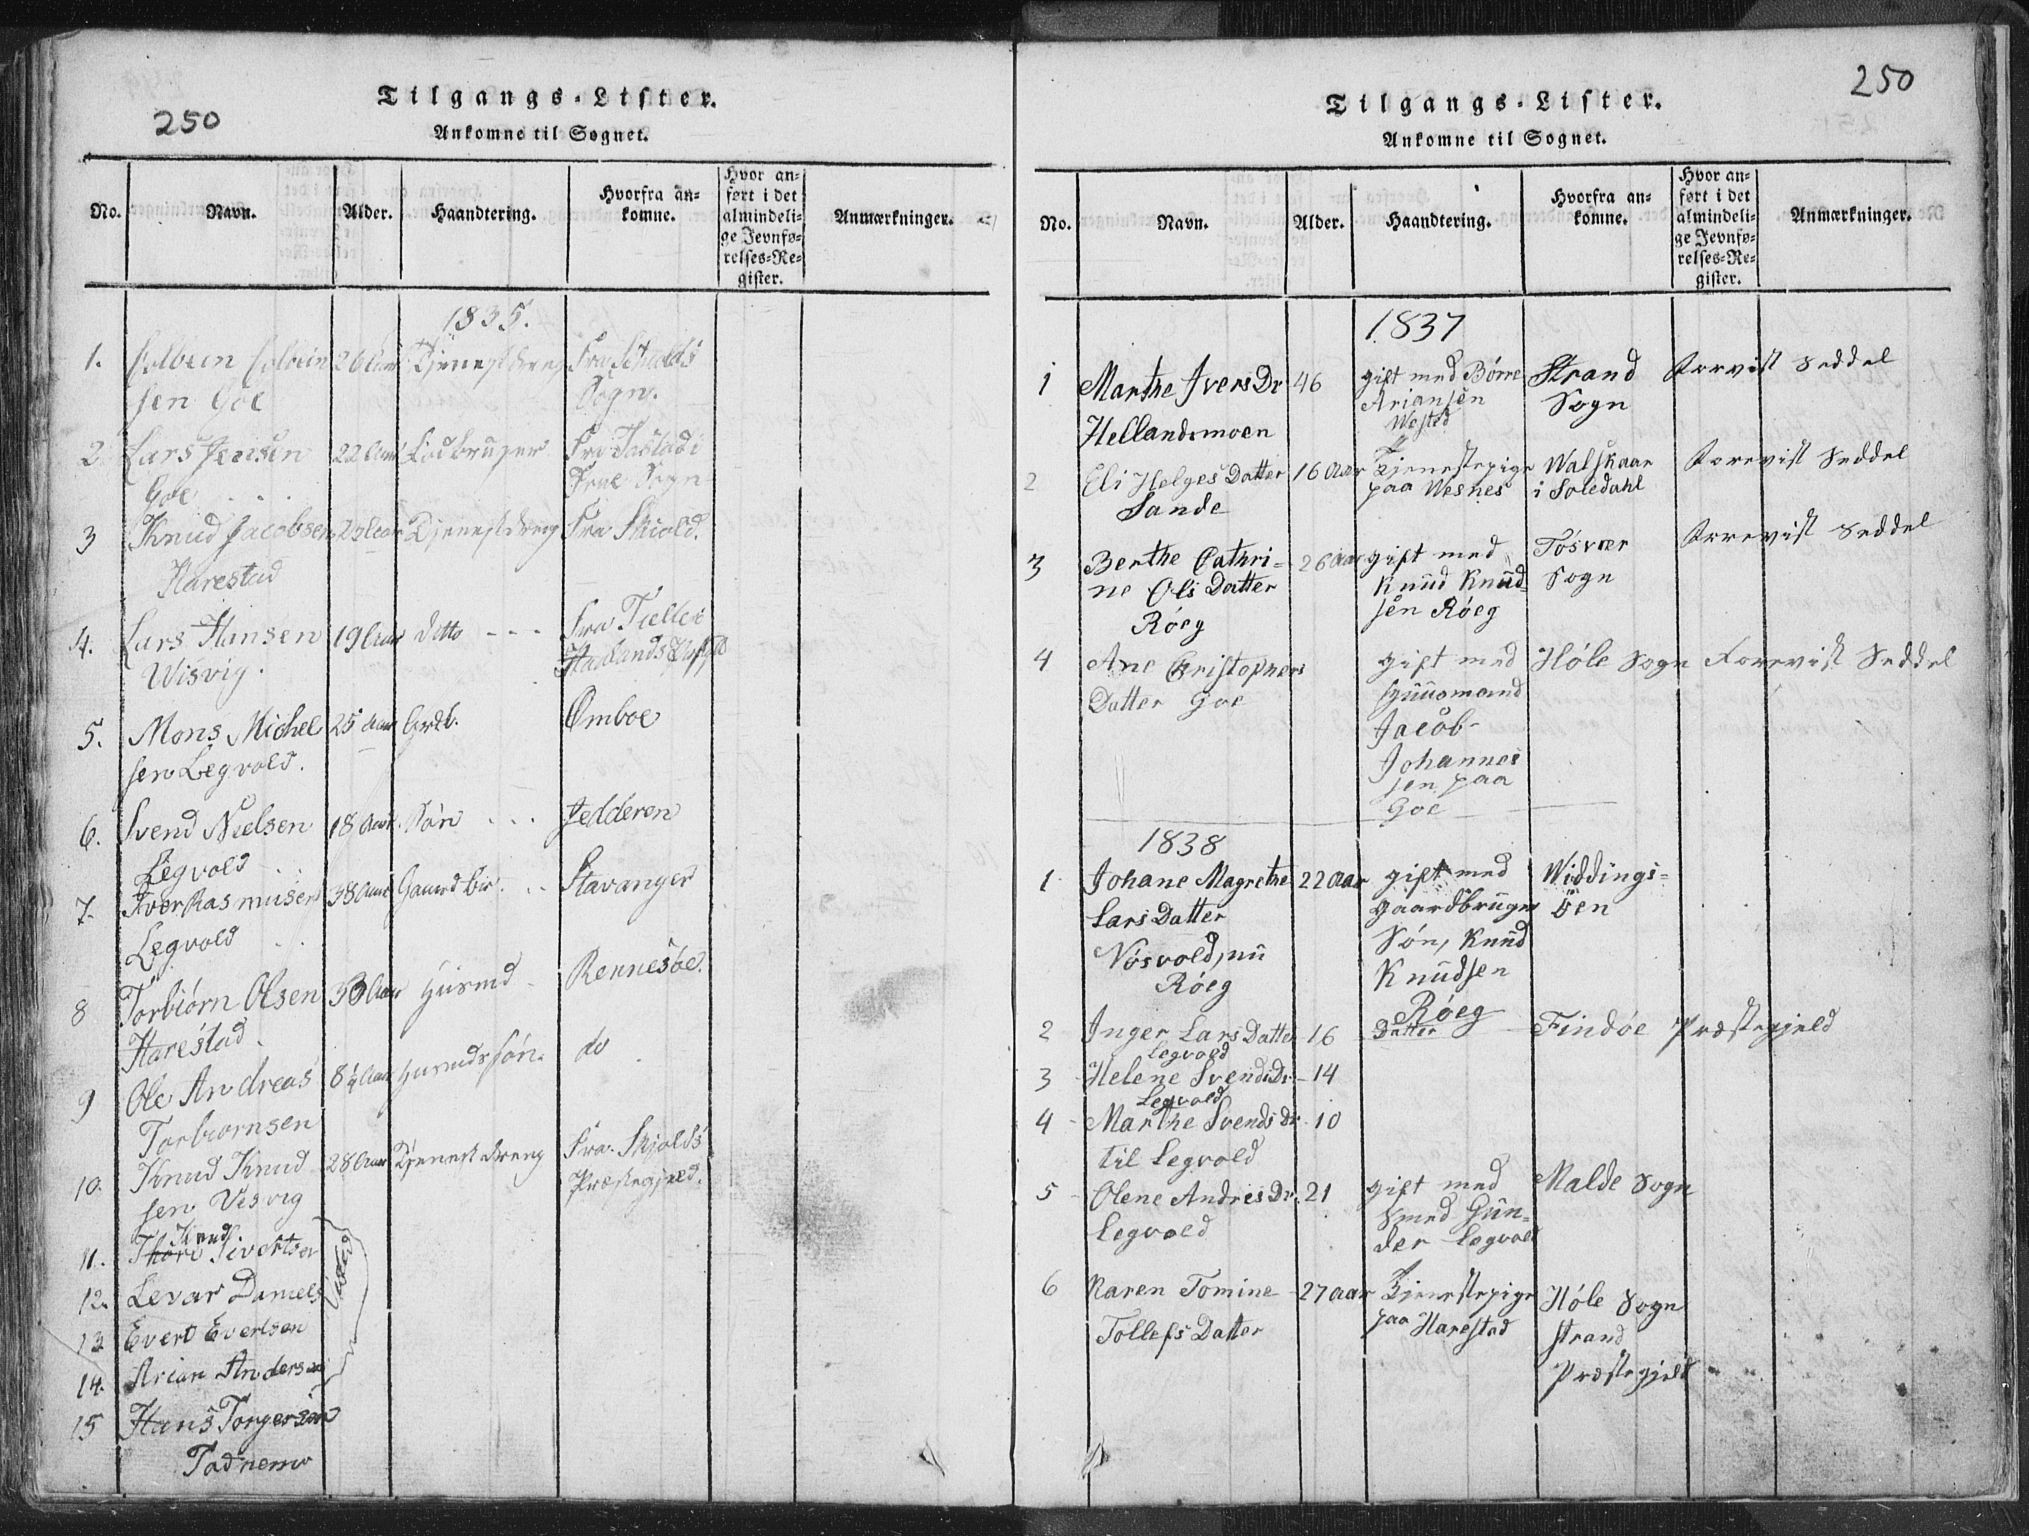 250
Tilgangs-Lister.
Ankomne til Sognet.
No.
Navn.
Alder.
Haandtering.
Hvorfra an-
komne.
Hvor an-
ført i det
almindeli-
ge Jevnfø-
relses-Re-
gister.
Anmærkninger.
1835.
1.
sen Goe
26 Aar
Tjenestdreng
Sogn.
2
Lars Jensen
Goe
22 Aar
Fra
Sogn
3
Knud Jacobsen
Harestad
Tjenestdreng
Fra Skiold.
4.
Lars Hansen
Wisvig.
19 Aar
ditto - - -
Fra
5.
Mons Michel
sen Legvold.
25 Aar
Omboe
6.
Svend Nielsen
Legvold
18 Aar
Søn
Jedderen
7.
Iver Rasmusen
Legvold
38 Aar
Stavanger
8
Torbiørn Olsen
Harestad.
Husmd
Rennesøe.
9
Ole Andreas
Torbiornsen
Husmds søn.
do
10.
Knud Knud
sen Visvig
28 Aar
Tjenestdreng
Fra Skjolds
Præstegjeld.
11.
Knud
Sivertsen
12.
Levar Daniels
13
Evert Evertsen
14.
Arian Andersen
15
Hans Torgersen
Tadnemo
250
Tilgangs-Lister.
Ankomne til Sognet.
No.
Navn.
Alder.
Haandtering.
Hvorfra an-
komne.
Hvor an-
ført i det
almindeli-
ge Jevnfø-
relses-Re-
gister.
Anmærkninger.
1837
1
Marthe Ivers Dr
Hellandsmoen
46
gift med Børre
Ariansen
Wested
Strand
Sogn
Forevist Seddel
2
Eli Helges Datter
Sande
16 Aar
Tjenestepige
paa Wesnes
Walskaar
i Soledahl
Forevist Seddel
3
Berthe Cathri-
ne Ols Datter
Röeg
26 Aar
gift med
Knud Knud-
sen Röeg
Tösvær
Sogn
Forevist Seddel
4
Ane Christophers
Datter Goe
gift med
Huusmand
Jacob
Johannes
sen paa
Goe
Höle Sogn
Forevist Seddel
1838
1
Johane Magrethe
Lars Datter
Nösvold, nu
Röeg
22 Aar
gift med
gaardbruger
Søn, Knud
Knudsen
Röeg
Widdings-
öen
2
Inger Lars Datter
Legvold
16
Datter
Findöe Præstegjeld
3
Helene Svends Dr
Legvold
14
4
Marthe Svends Dr
til Legvold
10
5
Olene Andres Dr
Legvold
21
gift med
Smed Gun-
der Legvold
Malde Sogn
6
Karen Tomine
Tollefs Datter
27 aar
Tjenestepige
paa Harestad
Höle Sogn
Strand
Præstegjeld